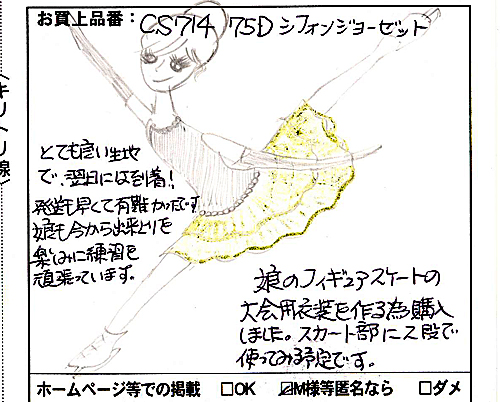 お買上品番： CS714 75D シフォンジョーゼット
〈キリトリ線〉
とても良い生地
で、翌日には到着！
発送も早くて有難かったです
娘も今から出来上りを
楽しみに練習を
頑張っています。
娘のフィギュアスケートの
大会用衣装を作る為購入
しました。スカート部に2段で
使ってみる予定です。
ホームページ等での掲載 □OK ☑M様等匿名なら □ダメ